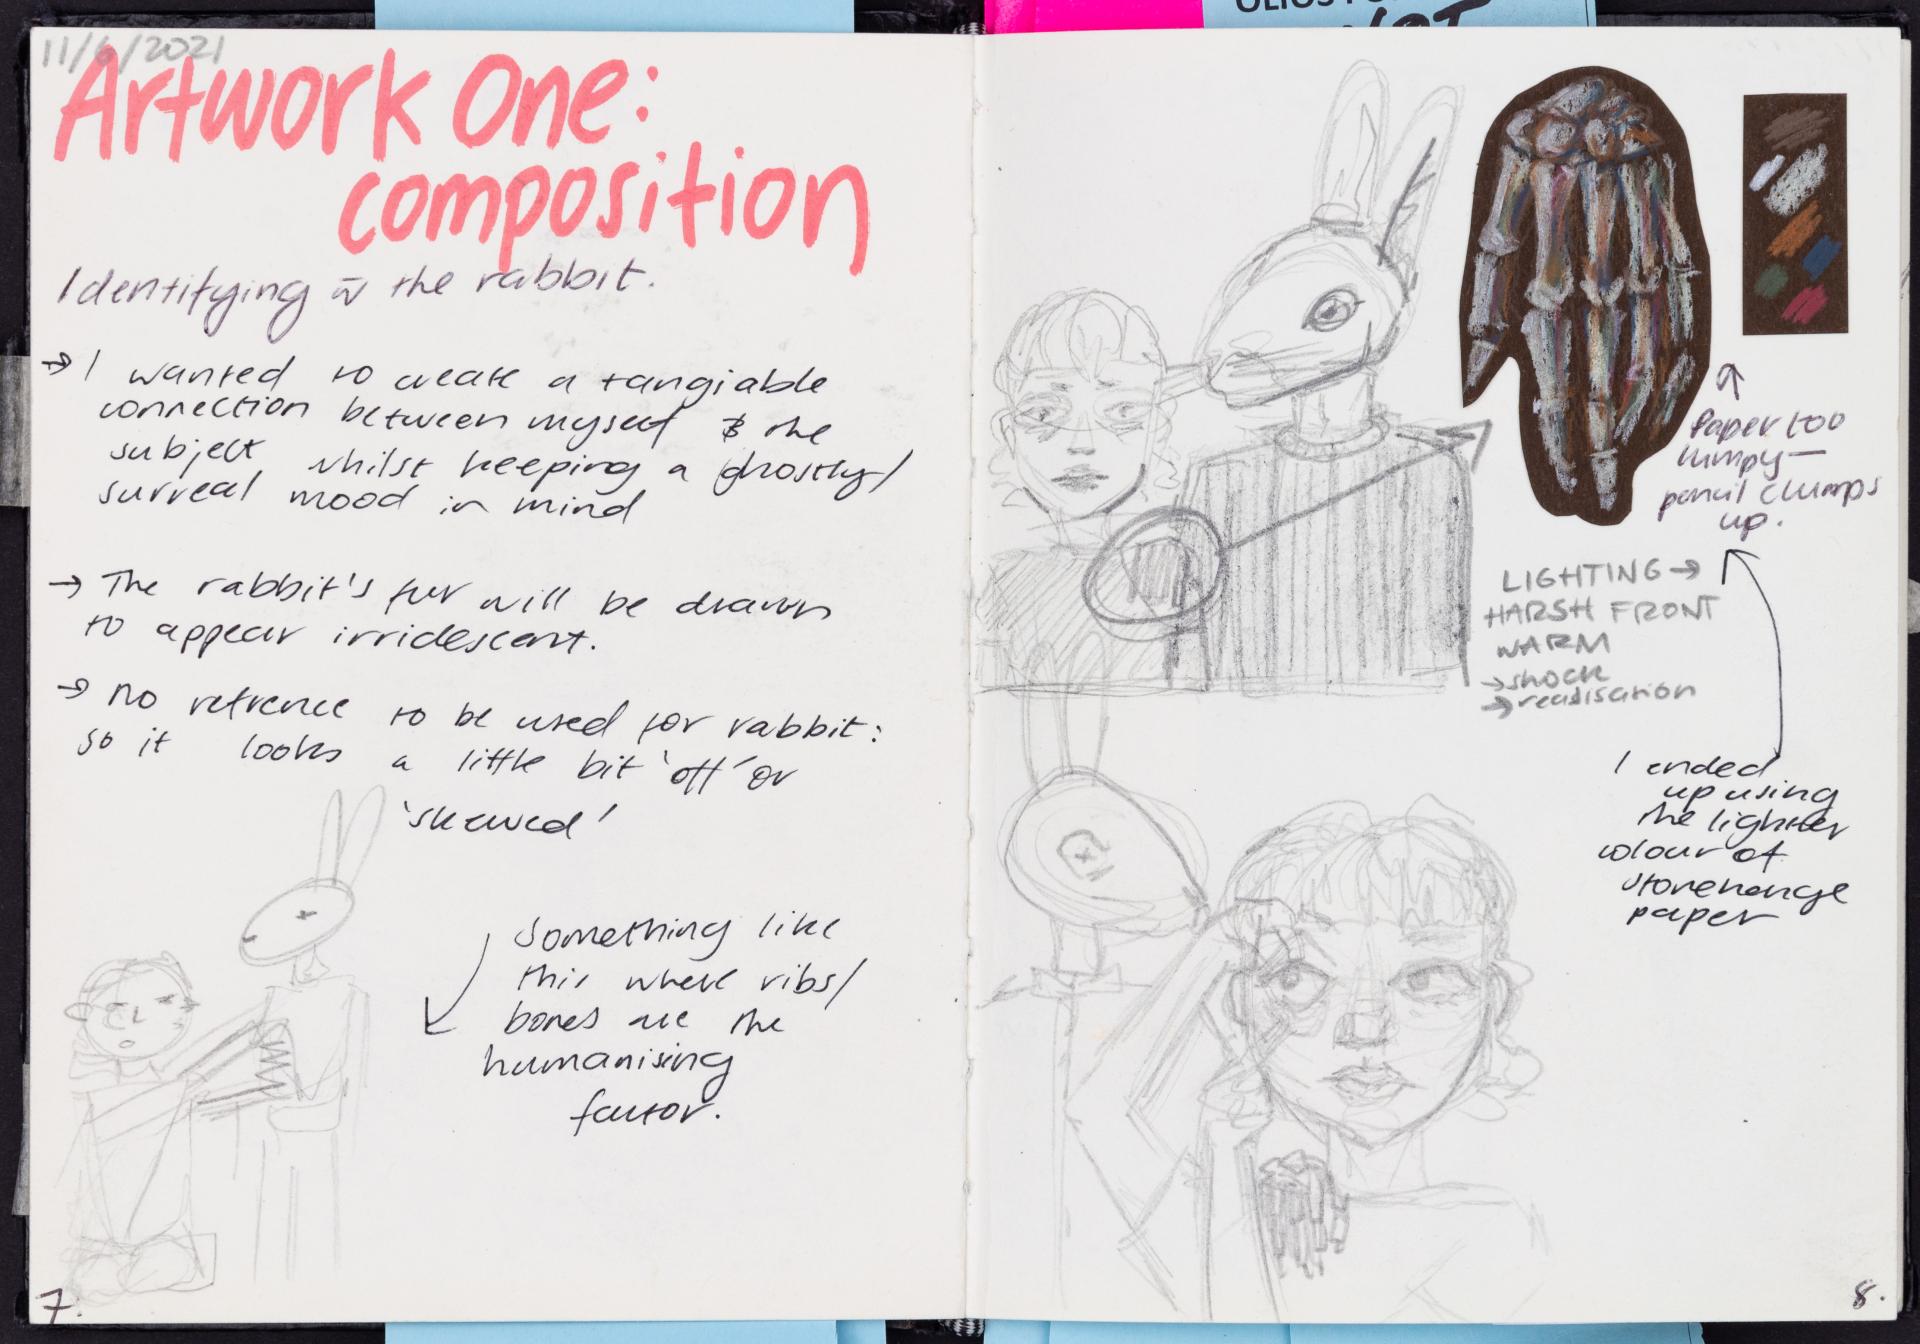 11/6/2021
Artwork One:
composition
Identifying w̄ the rabbit.
→ I wanted to create a tangiable
connection between myself & the
subject whilst keeping a ghostly/
surreal mood in mind
→ The rabbit's fur will be drawn
to appear irridescant.
→ No refrence to be used for rabbit:
so it looks a little bit 'off' or
'skewed'
Something like
this where ribs/
bones are the
humanising
factor.
7.
Paper too
lumpy—
pencil clumps
up.
LIGHTING →
HARSH FRONT
WARM
→ shock
→ realisation
I ended
up using
the lighter
colour of
stonehenge
paper
8.